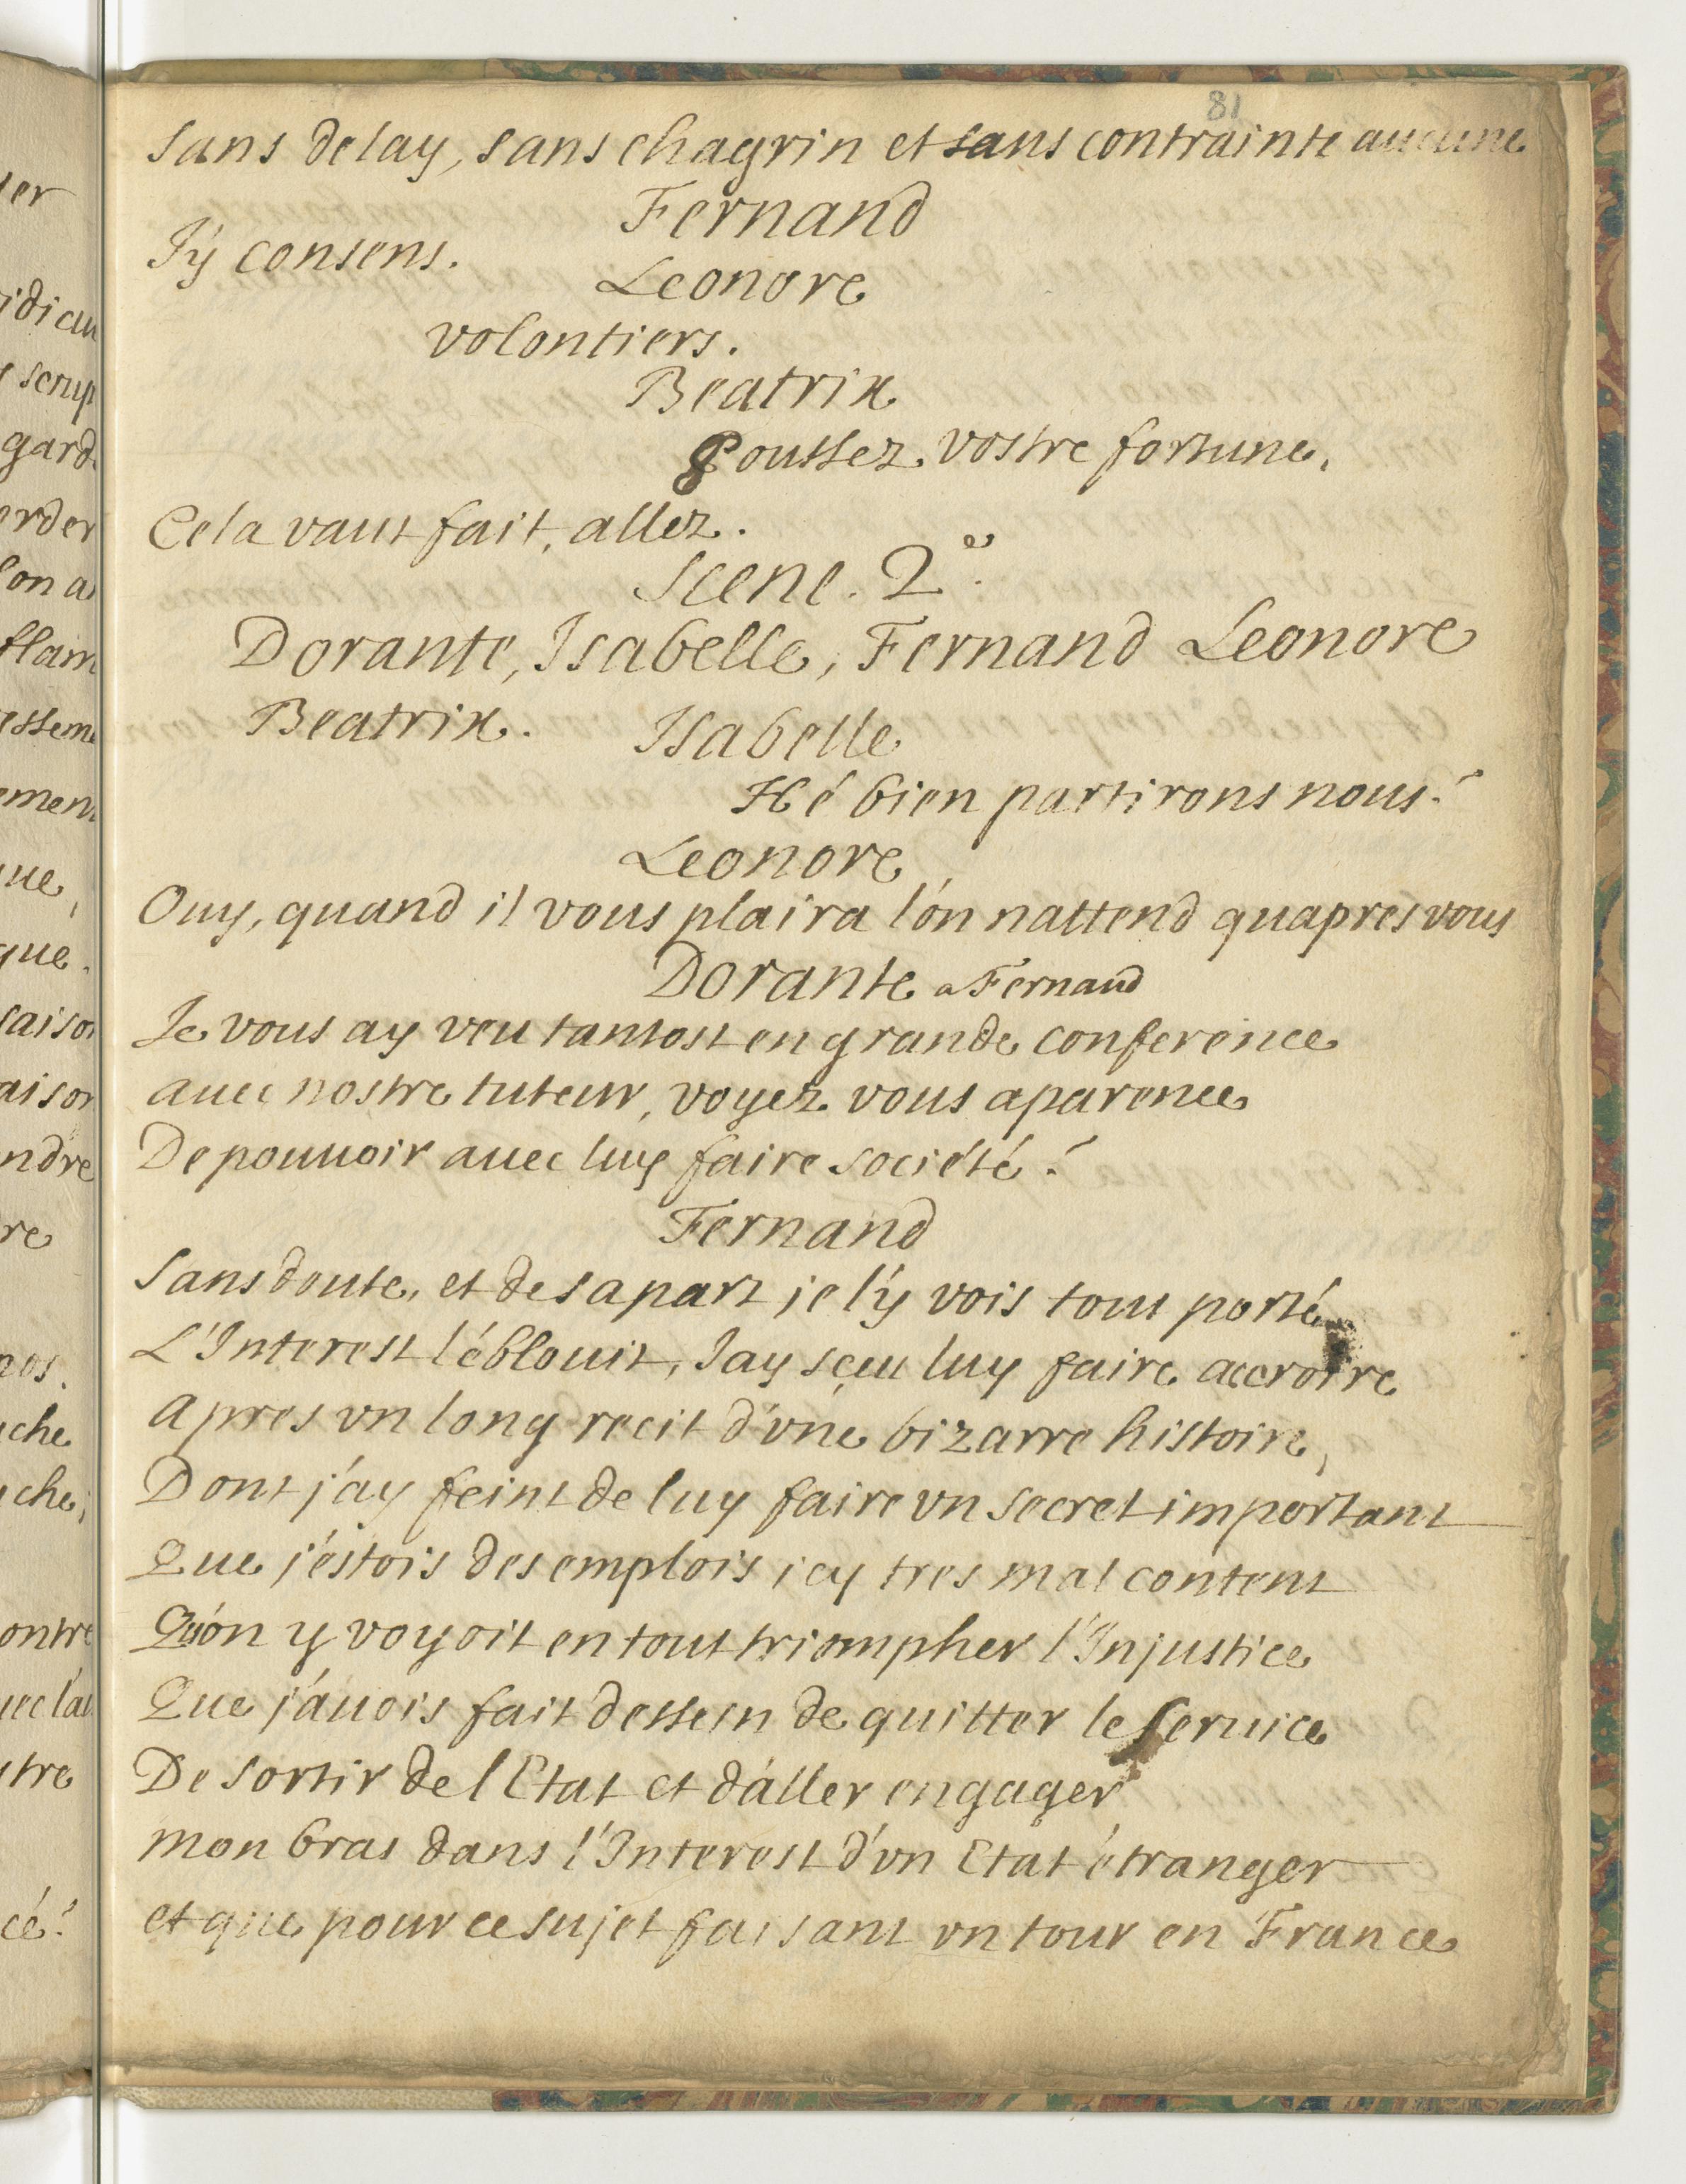 81
sans delay, sans chagrin et sans contrainte aucune
Fernand
J'y consens.
Leonore
volontiers.
Beatrix
Poussez vostre fortune,
Cela vaut fait, allez.
Scene. 2e.
Dorante, Isabelle, Fernand Leonore
Beatrix.
Isabelle
Hé bien partirons nous?
Leonore
Ouy, quand il vous plaira l'on nattend quapres vous
Dorante a Fernand
Je vous ay veu tantost en grande conference
auec nostre tuteur, voyez vous aparence
De pouuoir auec luy faire société?
Fernand
Sans doute, et de sa part je l'y vois tout porté
L'Interest l'éblouit, Jay sçeu luy faire accroire
Apres vn long recit d'vne bizarre histoire,
Dont j'ay feint de luy faire vn secret important
Que j'éstois des emplois icy tres mal content
Qu'on y voyoit en tout triompher l'Injustice
Que j'auois fait dessein de quitter le seruice
De sortir de l Etat et d'aller engager
mon bras dans l'Interest d'vn Etat étranger
et que pour ce sujet faisant vn tour en France